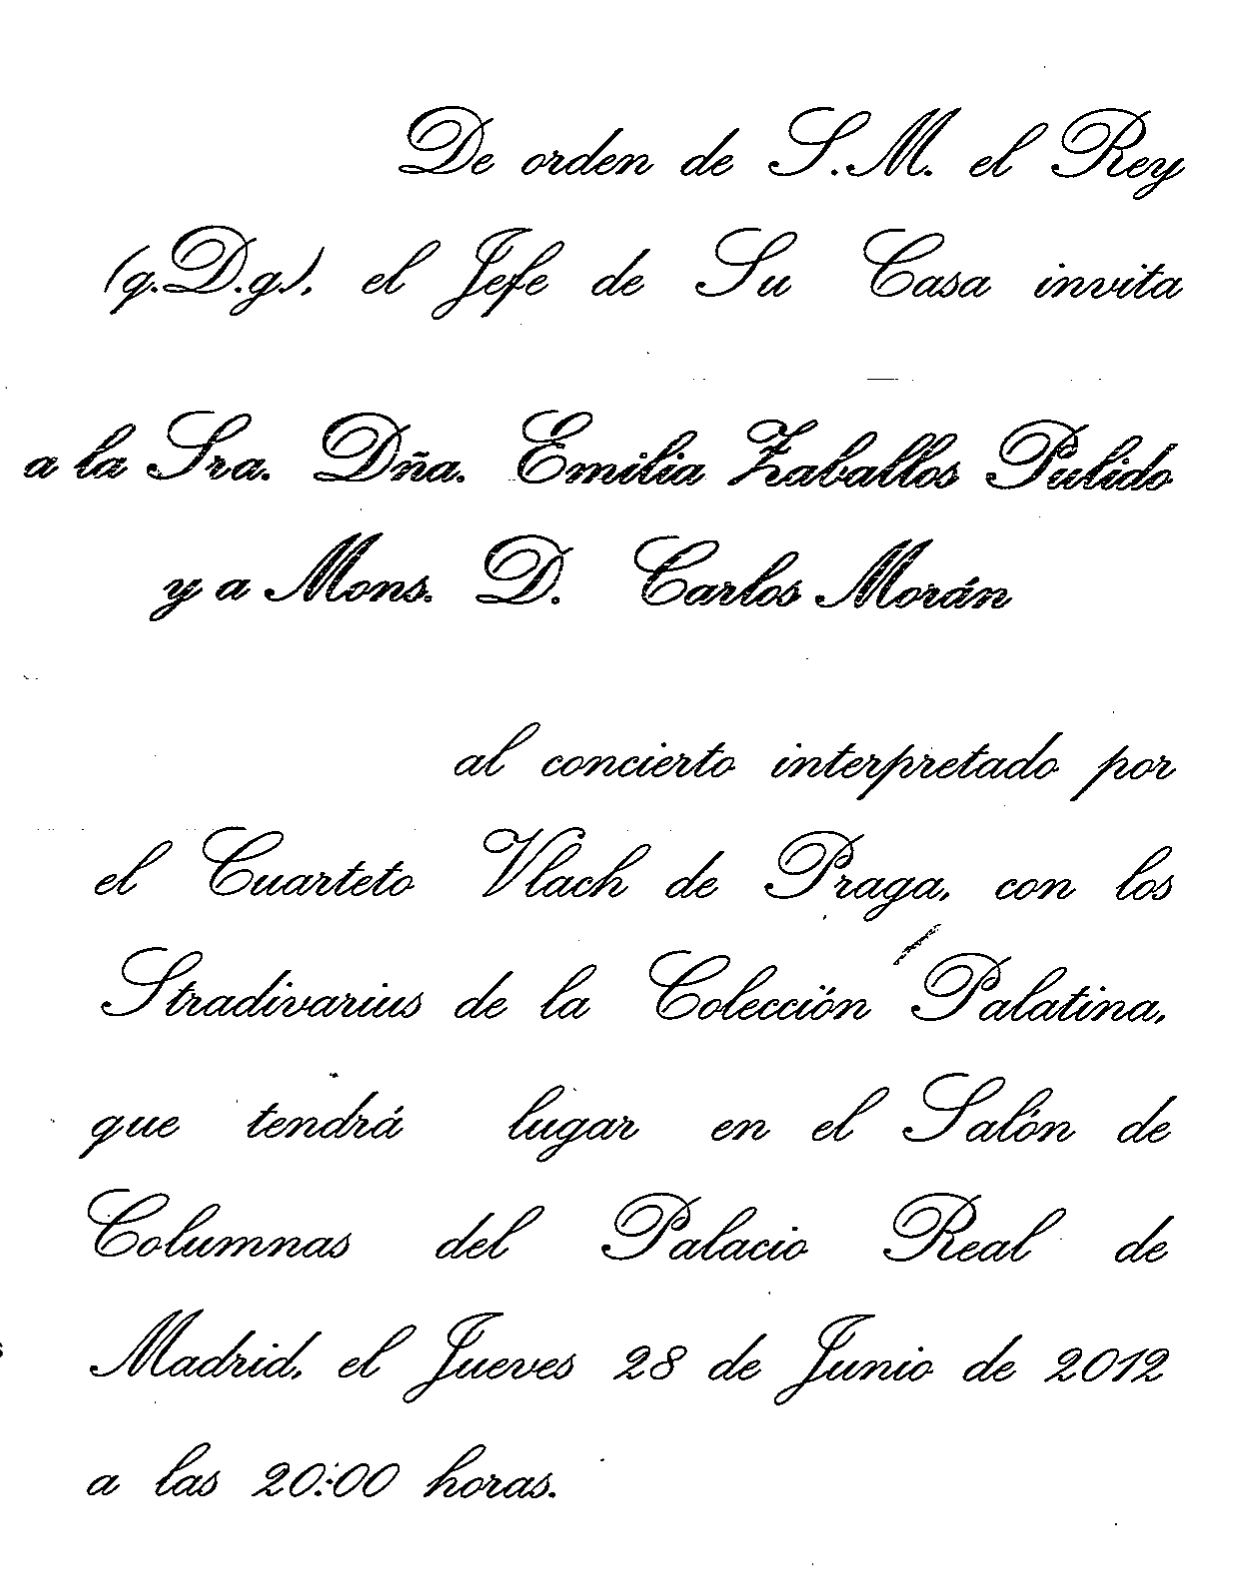 De orden de S.M. el Rey
(q.D.g.), el Jefe de Su Casa invita
a la Sra. Dña. Emilia Zaballos Pulido
y a Mons. D. Carlos Morán
al concierto interpretado por
el Cuarteto Vlach de Praga, con los
Stradivarius de la Colección Palatina,
que tendrá lugar en el Salón de
Columnas del Palacio Real de
Madrid, el Jueves 28 de Junio de 2012
a las 20:00 horas.